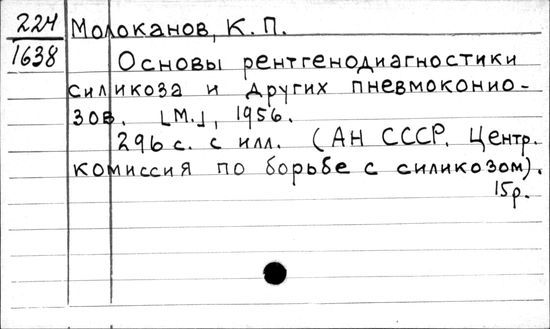 224
1638
Молоканов, К. П.
Основы рентгенодиагностики
силикоза и других пневмоконио-
зов. [М.], 1956.
296 с. с илл. (АН СССР. Центр.
комиссия по борьбе с силикозом).
15р.